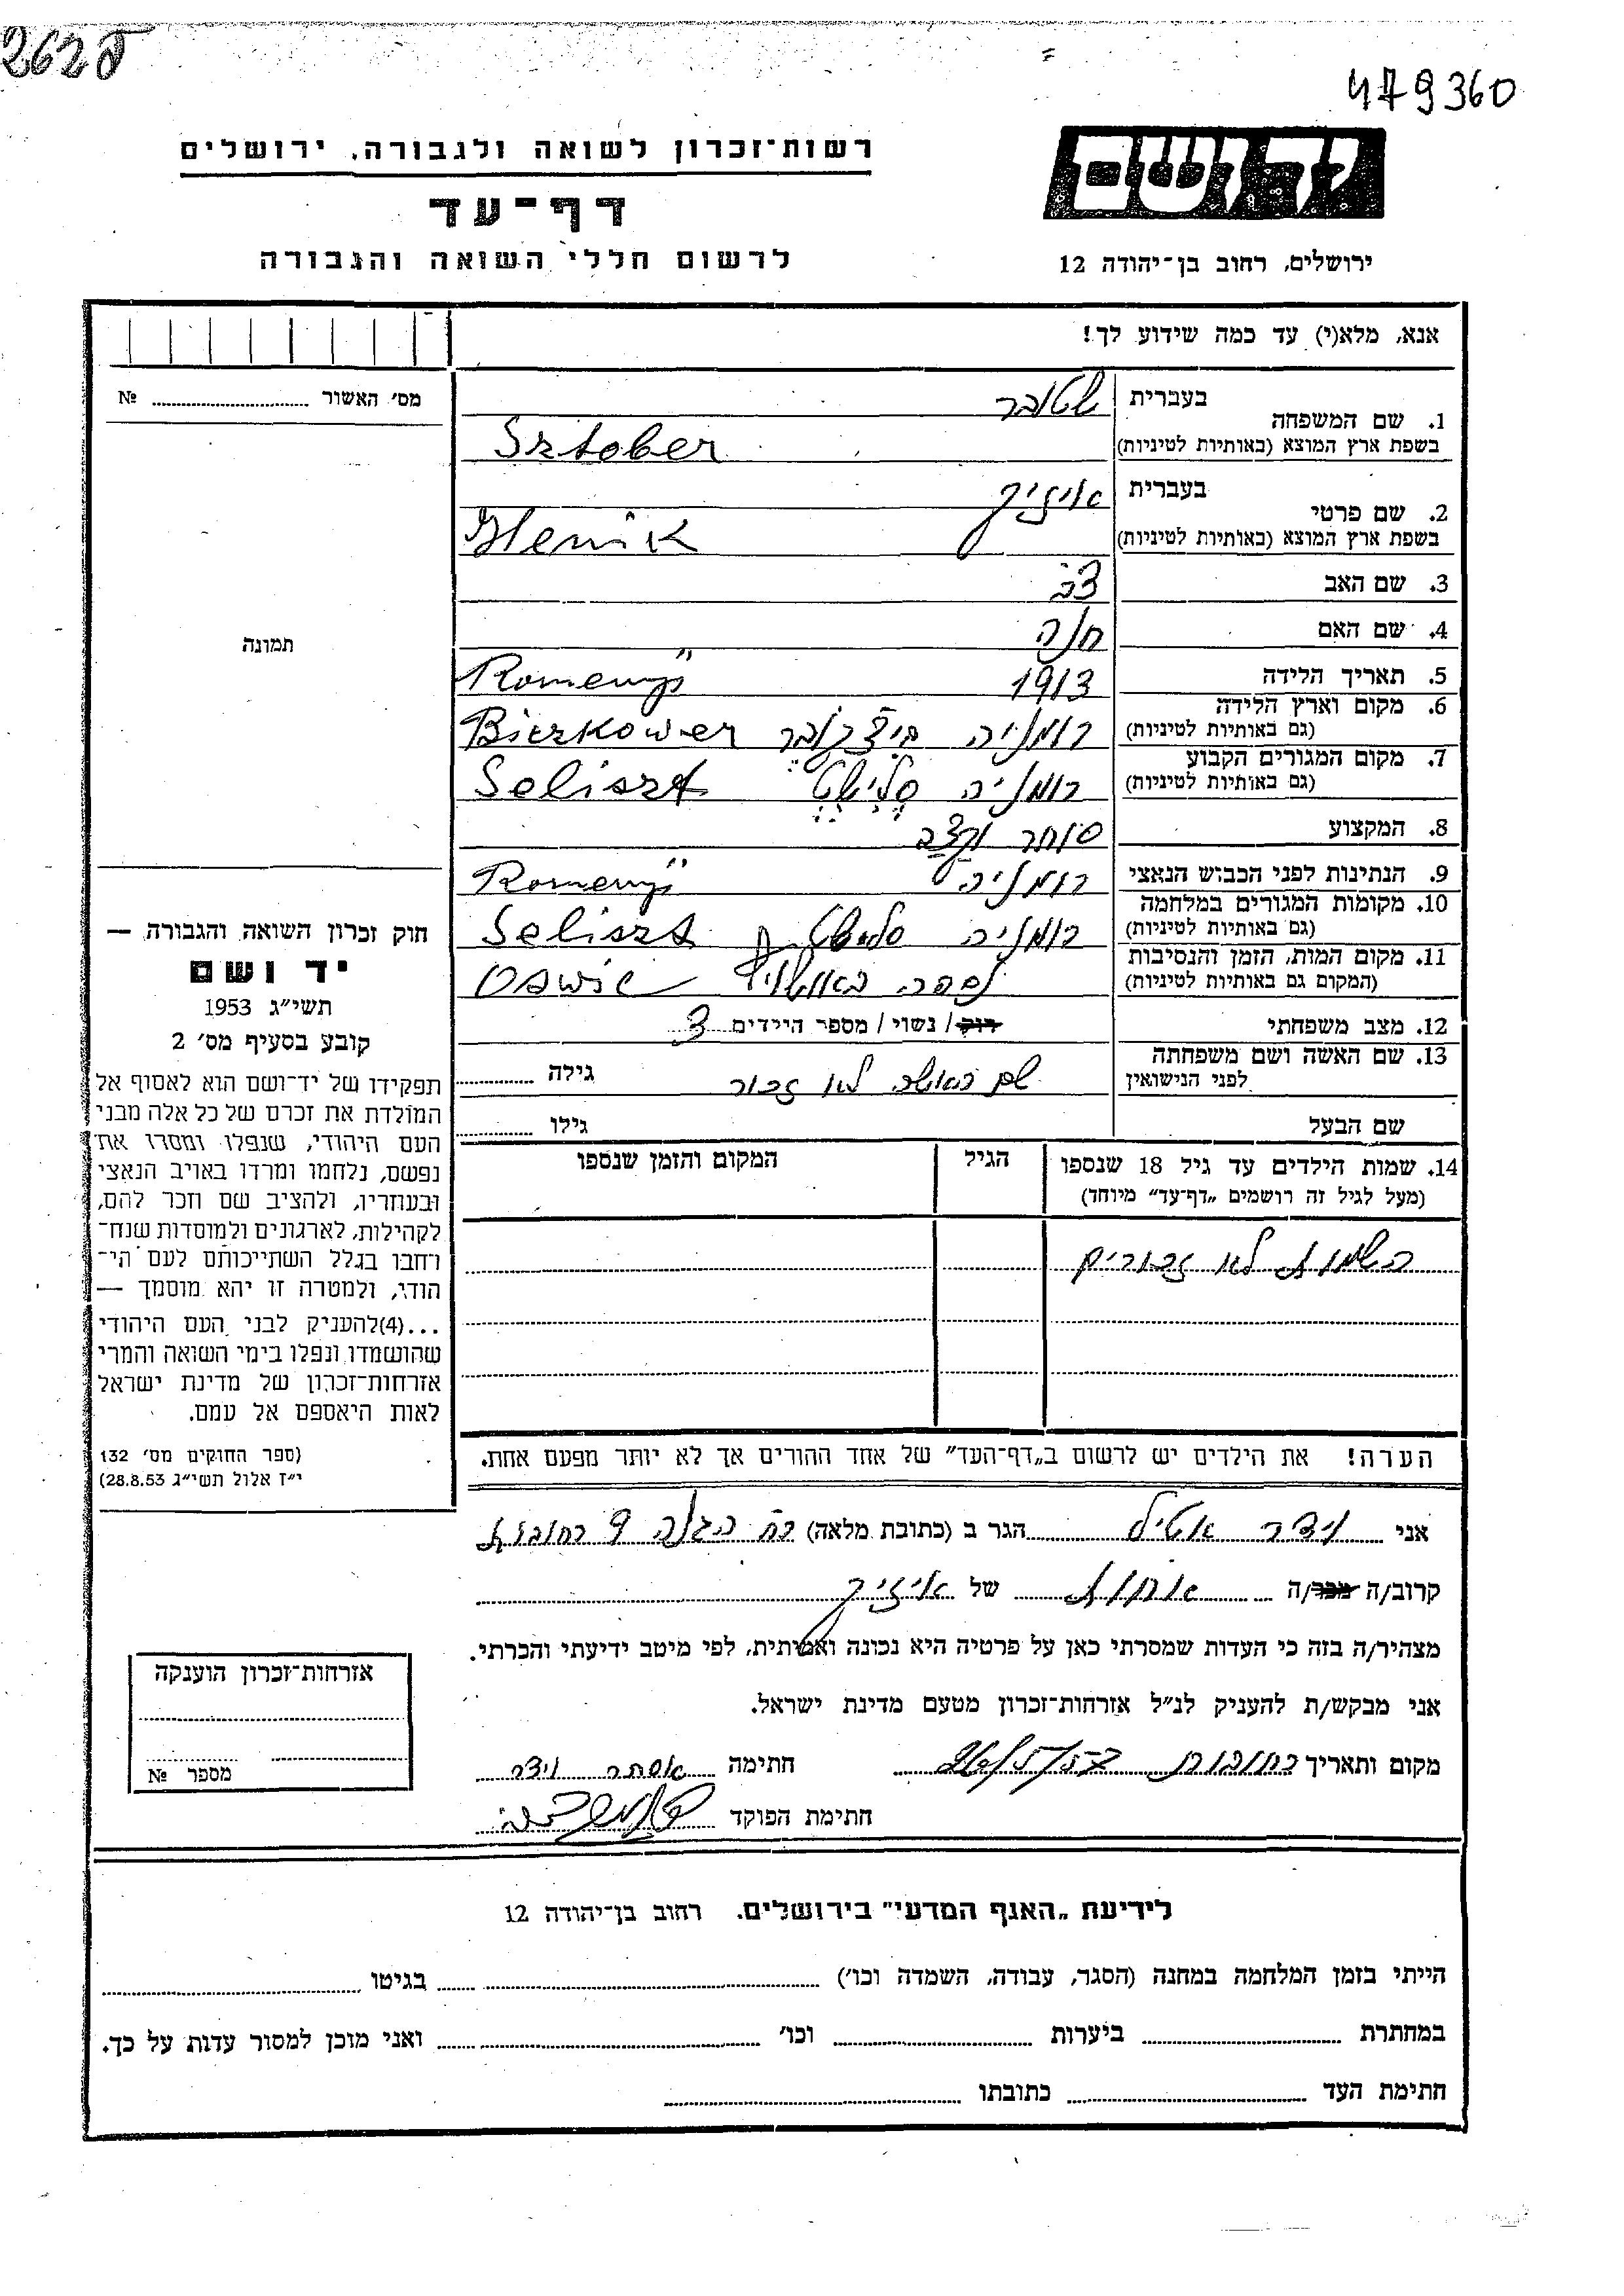 262
479360
יד ושם
רשות־זכרון לשואה ולגבורה, ירושלים
דף־עד
לרשום חללי השואה והגבורה
ירושלים, רחוב בן־יהודה 12
אנא, מלא(י) עד כמה שידוע לך!
מס׳ האשור № 
1. שם המשפחה בעברית שטובר
בשפת ארץ המוצא (באותיות לטיניות) Sztober
2. שם פרטי בעברית איזיק
בשפת ארץ המוצא (באותיות לטיניות)
3. שם האב צבי
4. שם האם חנה
5. תאריך הלידה 1913 Romenyi
6. מקום וארץ הלידה (גם באותיות לטיניות) רומניה Bierkower
7. מקום המגורים הקבוע (גם באותיות לטיניות) רומניה סלישט Seliszt
8. המקצוע סוחר וקצב
9. הנתינות לפני הכבוש הנאצי רומניה Romenyi
10. מקומות המגורים במלחמה (גם באותיות לטיניות) רומניה סלישט Seliszt
11. מקום המות, הזמן והנסיבות (המקום גם באותיות לטיניות) נספה באושויץ
12. מצב משפחתי רווק / נשוי / מספר הילדים 3
13. שם האשה ושם משפחתה לפני הנישואין שם האשה לא זכור גילה
שם הבעל גילו
14. שמות הילדים עד גיל 18 שנספו (מעל לגיל זה רושמים „דף־עד״ מיוחד) הגיל המקום והזמן שנספו
השמות לא זכורים
הערה! את הילדים יש לרשום ב„דף־העד״ של אחד ההורים אך לא יותר מפעם אחת.
תמונה
חוק זכרון השואה והגבורה —
יד ושם
תשי״ג 1953
קובע בסעיף מס׳ 2
תפקידו של יד־ושם הוא לאסוף אל
המולדת את זכרם של כל אלה מבני
העם היהודי, שנפלו ומסרו את
נפשם, נלחמו ומרדו באויב הנאצי
ובעוזריו, ולהציב שם וזכר להם,
לקהילות, לארגונים ולמוסדות שנח־
רחבו בגלל השתייכותם לעם הי־
הודי, ולמטרה זו יהא מוסמך —
...(4)להעניק לבני העם היהודי
שהושמדו ונפלו בימי השואה והמרי
אזרחות־זכרון של מדינת ישראל
לאות היאספם אל עמם.
(ספר החוקים מס׳ 132
י״ז אלול תשי״ג 28.8.53)
אני וידר הגר ב (כתובת מלאה) רח הגנה 9 רחובות
קרוב/ה מכר/ה אחות של איזיק
מצהיר/ה בזה כי העדות שמסרתי כאן על פרטיה היא נכונה ואמיתית, לפי מיטב ידיעתי והכרתי.
אני מבקש/ת להעניק לנ״ל אזרחות־זכרון מטעם מדינת ישראל.
מקום ותאריך רחובות חתימה אסתר וידר
חתימת הפוקד
אזרחות־זכרון הוענקה
מספר №
לידיעת „האגף המדעי״ בירושלים, רחוב בן־יהודה 12
הייתי בזמן המלחמה במחנה (הסגר, עבודה, השמדה וכו׳) בגיטו
במחתרת ביערות וכו׳ ואני מוכן למסור עדות על כך.
חתימת העד כתובתו